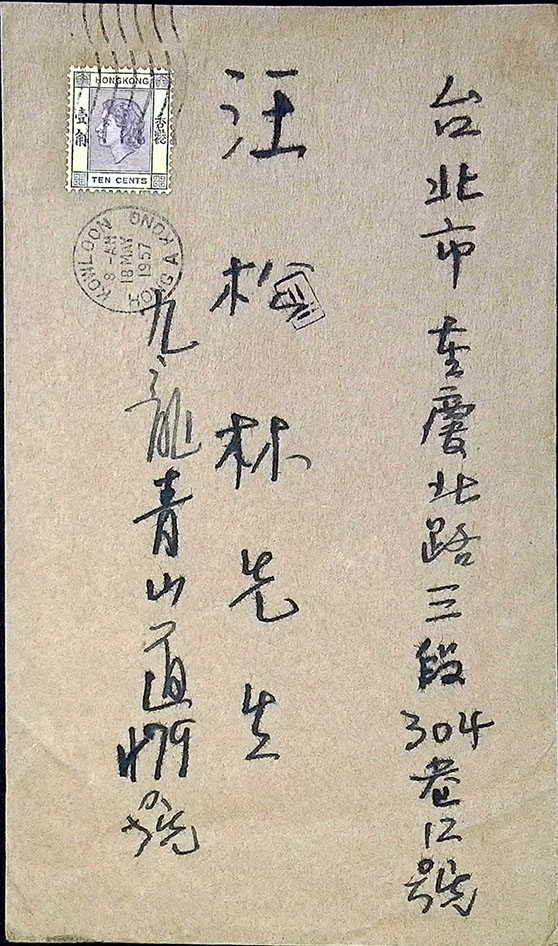 台北市重慶北路三段304巷12號
汪松林先生
九龍青山道479號
HONGKONG
壹角
香港
TEN CENTS
KOWLOON
8 - AM
18 MAY
1957
HONG KONG